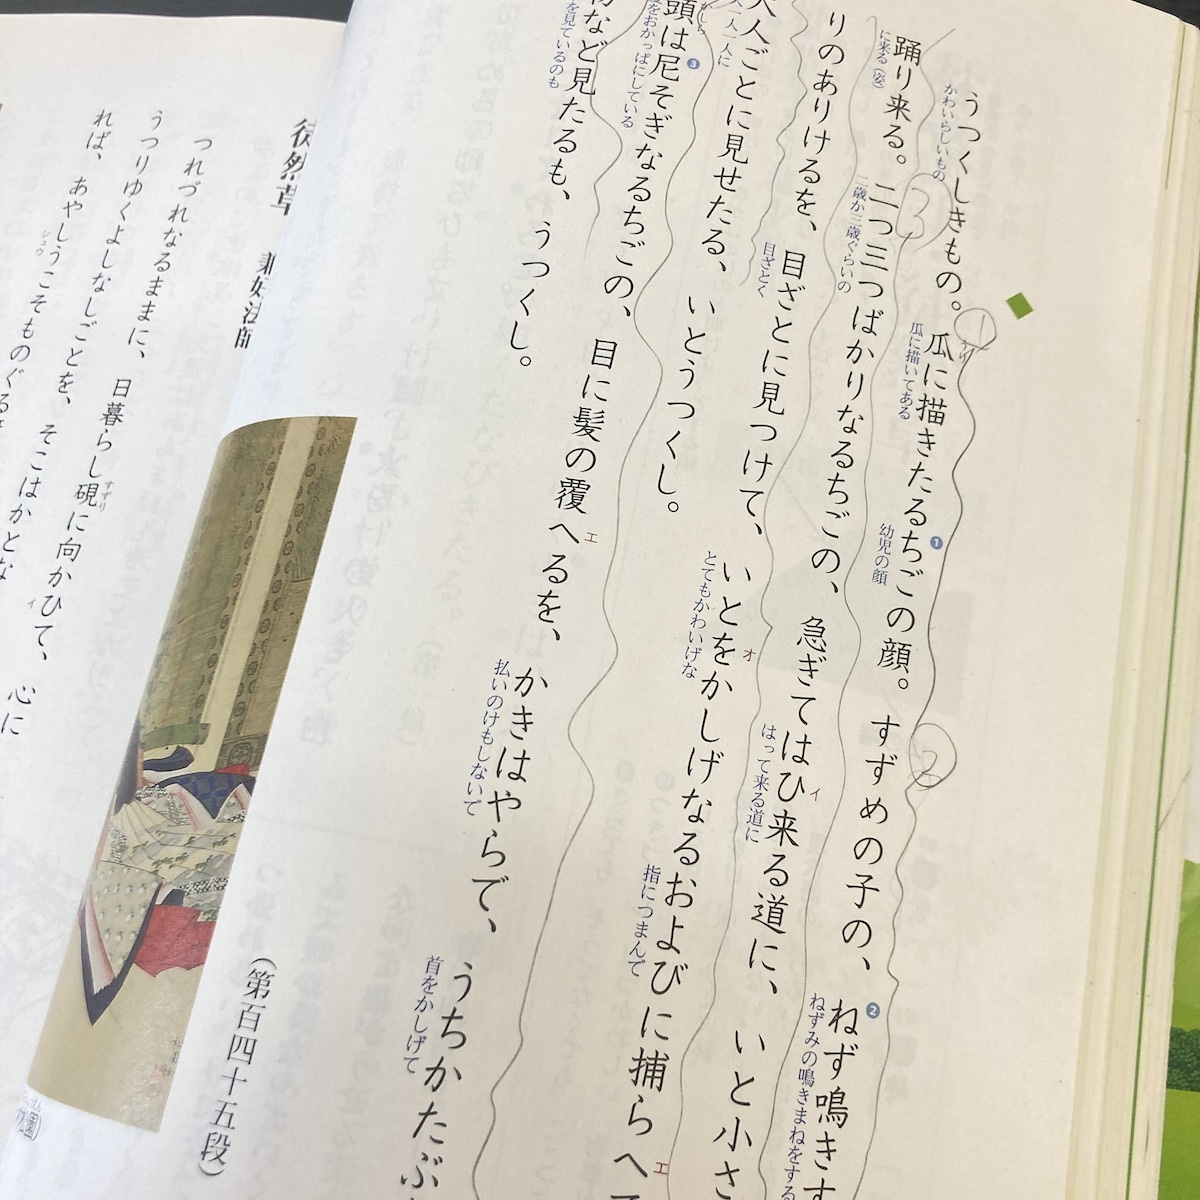 うつくしきもの。瓜に描きたるちごの顔。すずめの子の、ねず鳴きす
かわいらしいもの
うり
瓜に描いてある
幼児の顔
ねずみの鳴きまねをする
①
②
③
1
2
踊り来る。二つ三つばかりなるちごの、急ぎてはひ来る道に、いと小さ
に来る(姿)
二歳か三歳ぐらいの
はって来る道に
イ
りのありけるを、目ざとに見つけて、いとをかしげなるおよびに捕らへて
目ざとく
とてもかわいげな
オ
指につまんで
エ
大人ごとに見せたる、いとうつくし。
人一人一人に
頭は尼そぎなるちごの、目に髪の覆へるを、かきはやらで、うちかたぶ
かしら
3
をおかっぱにしている
エ
払いのけもしないで
首をかしげて
など見たるも、うつくし。
を見ているのも
(第百四十五段)
徒然草
兼好法師
つれづれなるままに、日暮らし硯に向かひて、心に
すずり
イ
うつりゆくよしなしごとを、そこはかとな
れば、あやしうこそものぐる
シュウ